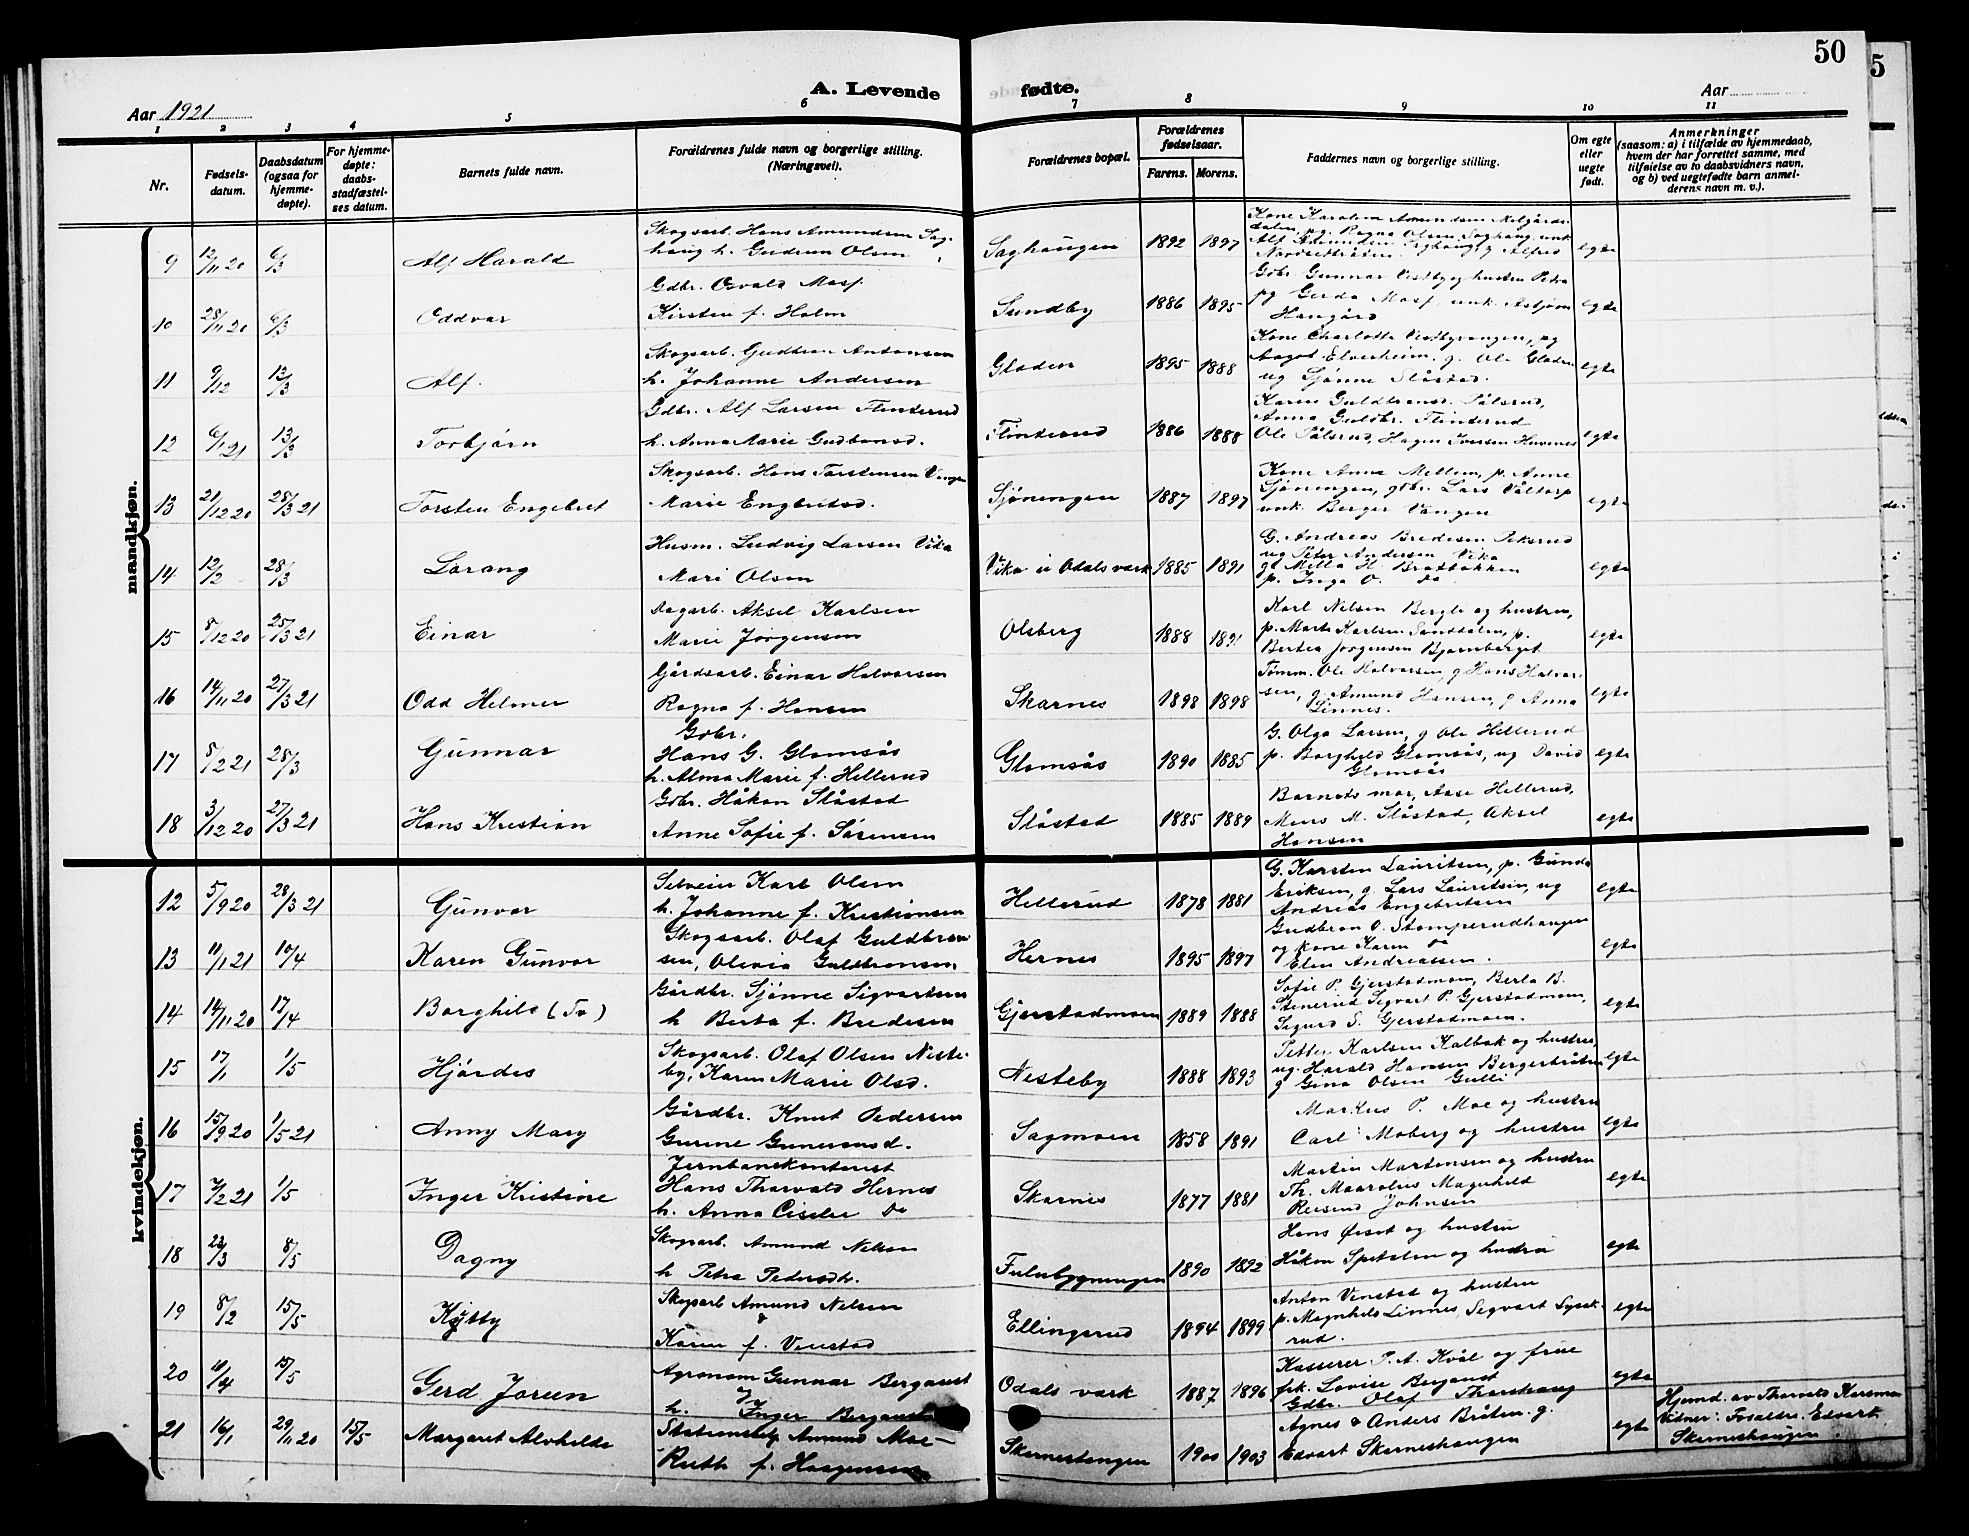 50
5
A. Levende fødte.
Aar 1921
Aar
1 2 3 4 5 6 7 8 9 10 11
Nr.
Fødsels-
datum.
Daabsdatum
(ogsaa for
hjemme-
døpte).
For hjemme-
døpte:
daabs-
stadfæstel-
ses datum.
Barnets fulde navn.
Forældrenes fulde navn og borgerlige stilling.
(Næringsvei).
Forældrenes bopæl.
Forældrenes
fødselsaar.
Farens. Morens.
Faddernes navn og borgerlige stilling.
Om egte
eller
uegte
født.
Anmerkninger
(saasom: a) i tilfælde av hjemmedaab,
hvem der har forrettet samme, med
tilføielse av to daabsvidners navn,
og b) ved uegtefødte barn anmel-
derens navn m. v.).
mandkjøn.
9 12/11 20 6/3 Alf Harald
Skogsarb. Hans Amundsen Sag-
haug h. Gudrun Olsen
Saghaugen 1892 1897
Kone Karoline Amundsen
Ragna Olsen Saghaug, unk
Alf Amundsen Saghaug g Alfred
egte
10 28/11 20 6/3 Oddvar
Gdbr. Osvald Mosf
Kirsten f. Holm
Sundby 1886 1895
Gdbr Gunnar Vestby og hustru Petra
pg Gerda Mosf unk. Asbjørn
Haugård
egte
11 9/12 13/3 Alf.
Skogsarb. Gudbran Antonsen
h. Johanne Andersen
Gladen 1895 1888
Kone Charlotte Vestbyvangen, ug
Aagot Elverheim. g. Ole Gladen
ug Sjønne Slåstad.
egte
12 6/1 21 13/3 Torbjørn
Gdbr. Alf Larsen Flinterud
h. Anna Marie Gudbrand.
Flinterud 1886 1888
Karen Guldbrands. Pålsrud,
Anna Guldbr. Flinterud
Ole Pålsrud, Hagen Iversen
egte
13 21/12 20 28/3 21 Torsten Engebret
Skogsarb. Hans Torstensen Vangen
Marie Engbretsd.
Sjøningen 1887 1897
Kone Anna Mellem, p. Anne
Sjøningen, gdbr. Lars Våltorp
unk. Berger Vangen
egte
14 12/2 28/3 Lorang
Husm. Ludvig Larsen Vika
Mari Olsen
Vika u Odals værk 1885 1891
G. Andreas Bredesen Peksrud
ug Peter Andersen Vika
g. Milla H. Bråtbakken
p. Inga O. do
egte
15 8/12 20 25/3 21 Einar
Dagarb. Aksel Karlsen
Marie Jørgensen
Olsberg 1888 1891
Karl Nilsen Bergli og hustru,
p. Marte Karlsen Sanddalen, p.
Bertea Jørgensen Bjørnberget
egte
16 14/11 20 27/3 21 Odd Helmer
Gårdsarb. Einar Halvorsen
Ragna f. Hansen
Skarnes 1898 1898
Tømm. Ole Halvorsen, g Hans Halvor-
sen, g. Amund Hansen, g Anna
Linnes.
egte
17 5/2 21 28/3 Gunnar
Gdbr.
Hans G. Glomsås
h. Alma Marie f. Hellerud
Glomsås 1890 1885
G. Olga Larsen, g Ole Hellerud
p. Borghild Glomsås, ug David
Glomsås
egte
18 3/12 20 27/3 21 Hans Kristian
Gdbr. Håkon Slåstad
Anne Sofie f. Sørensen
Slåstad 1885 1889
Barnets mor, Aase Hellerud,
Mens M. Slåstad, Aksel
Hansen
egte
kvindekjøn.
12 5/9 20 28/3 21 Gunvor
Selveier Karl Olsen
h. Johanne f. Kristiansen
Hellerud 1878 1881
G. Karsten Lauritsen, p. Gunda
Eriksen, g. Lars Lauritsen, ug
Andreas Engebretsen
egte
13 11/1 21 10/4 Karen Gunvor
Skogsarb. Olaf Guldbran
sen, Olivia Guldbransen
Hernes 1895 1897
Gudbran O. Stomperudhaugen
og kone Karen do
Elen Andreassen.
egte
14 14/11 20 17/4 Borghild (Tv)
Gårdbr. Sjønne Sigvartsen
h Berta f. Bredesen
Gjerstadmoen 1889 1888
Sofie P. Gjerstadmoen, Berta B.
Stenerud Segvart P. Gjerstadmoen,
Sigurd S. Gjerstadmoen.
egte
15 17/1 1/5 Hjørdis
Skogsarb. Olaf Olsen Neste-
by, Karen Marie Olsd.
Nesteby 1888 1893
Petter Karlsen Kalbak og hustru,
ug. Harald Hansen Bergerbråten
g Gina Olsen Gulli
egte
16 15/9 20 1/5 21 Anny Mary
Gårdbr. Knut Pedersen
Gurine Gunerusd.
Sagmoen 1858 1891
Markus P. Moe og hustru
Carl Moberg og hustru
egte
17 7/2 21 1/5 Inger Kristine
Jernbanekontorist
Hans Thorvald Hernes
h. Anna Cecilie do
Skarnes 1877 1881
Martin Martensen og hustru
Th. Maarelius Magnhild
Johnsen
egte
18 23/3 8/5 Dagny
Skogsarb. Amund Nelsen
h Petra Pedersdtr.
Fulubygningen 1890 1892
Hans Ørset og hustru
Håkon Spetalen og hustru
egte
19 8/2 15/5 Kitty
Skogsarb Amund Nelsen
Karen f. Venstad
Ellingsrud 1894 1899
Anton Venstad og hustru
p. Magnhild Linnes, Segvart Sysk-
rud.
egte
20 11/4 15/5 Gerd Joreen
Agronom Gunnar Bergaust
h. Inger Bergaust
Odals værk 1887 1896
Kasserer P. A. Kvål og frue
frk. Lovise Bergaust
Gdbr. Olaf Thorshaug
egte
21 16/1 29/11 20 15/5 Margaret Alvhilde
Amund Moe
Ruth f. Haagensen
Skarnestangen 1900 1903
Agnes & Anders Bråten. g.
Edvart Skarneshaugen
egte
Hjemd. av Thorvald
Vidner: Foraldre. Edvart
Skarneshaugen.